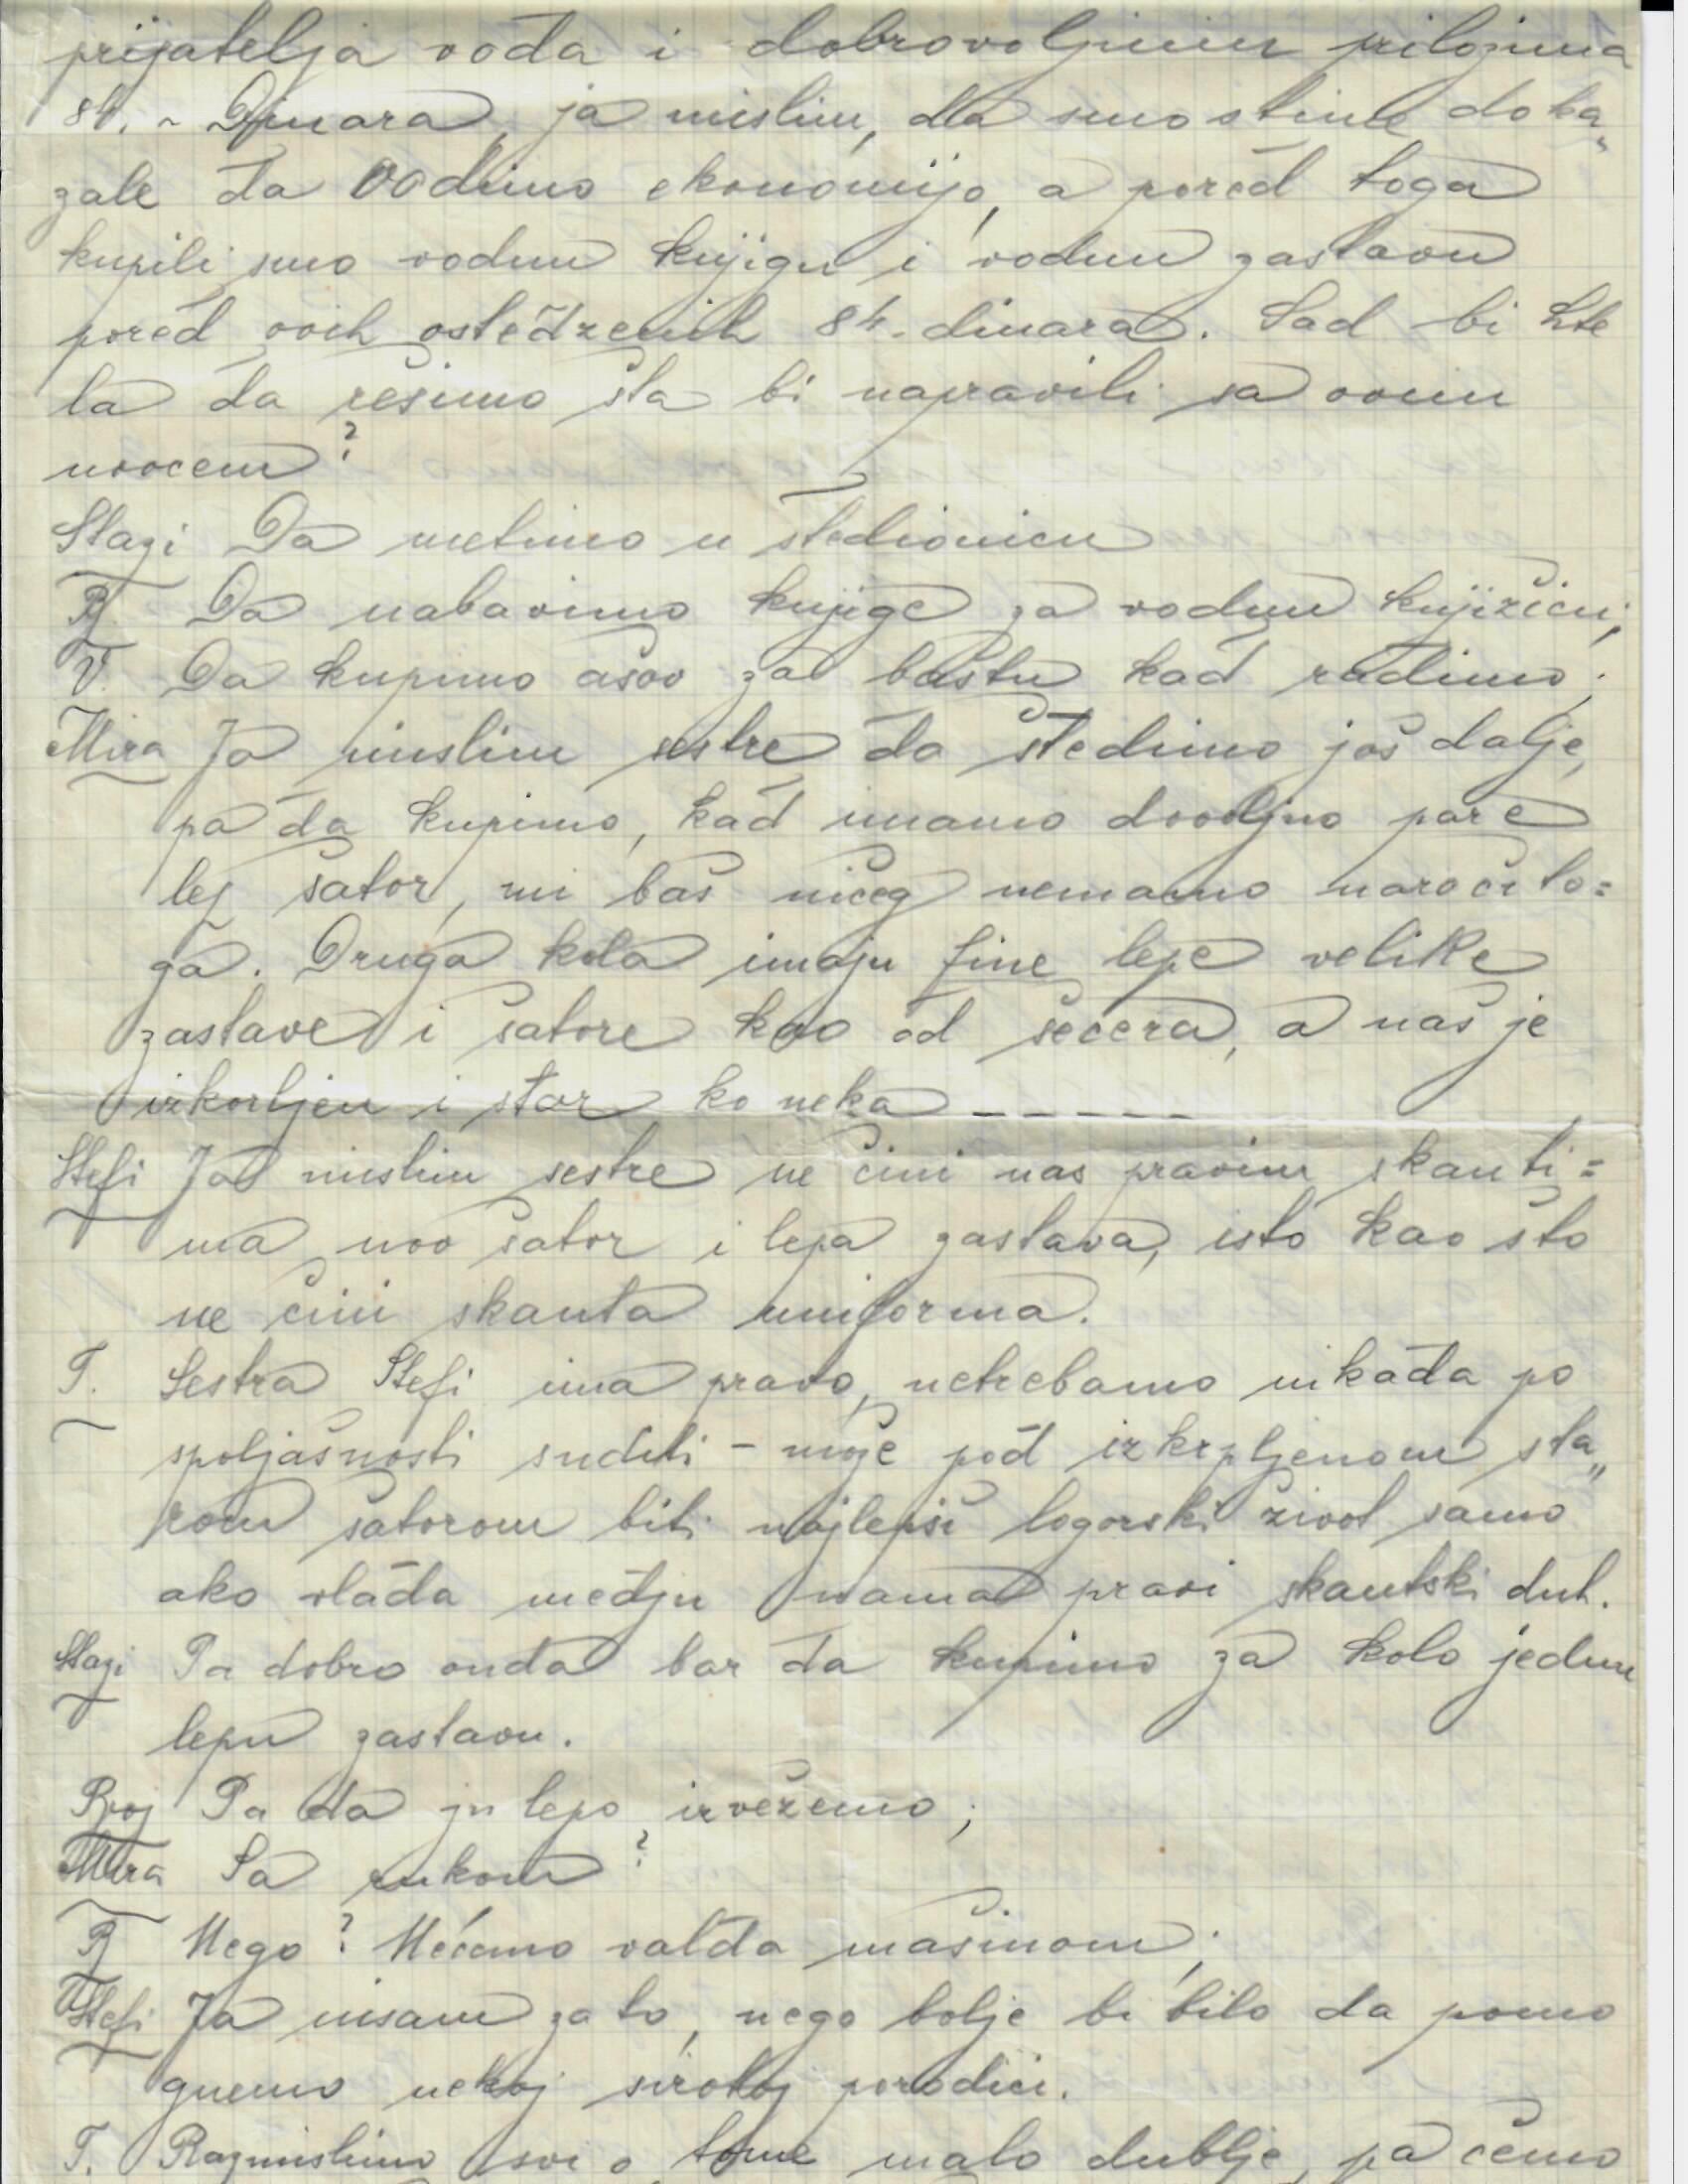 prijatelja voda i dobrovoljnim prilozima
84.- Dinara, ja mislim, da smo stime doka„
zale da vodimo ekonomijo, a pored toga
kupili smo vodnu knjigu i vodnu zastavu
pored ovih ostedzenih 84.- dinara. Sad bi hte
la da rešimo šta bi napravili sa ovim
novcem?
Stazi Da metimo u štedionicu
Rj. Da nabavimo knjige za vodnu knjižicu;
V. Da kupimo ašov za baštu kad radimo;
Mira Ja mislim sestre da štedimo još dalje,
pa da kupimo, kad imamo dovoljno pare
lep šator, mi baš ničeg nemamo naročito=
ga. Druga kola imaju fine lepe velike
zastave i šatore kao od šećera, a naš je
izkrpljen i star ko neka _ _ _ _ _ _
Stefi Ja mislim sestre ne čini nas pravim skauti=
ma nov šator i lepa zastava, isto kao što
ne čini skauta uniforma.
T. Sestra Stefi ima pravo, netrebamo nikada po
spoljašnosti suditi - može pod izkrpljenom sta„
rom šatorom biti najlepši logorski život samo
ako vlada medju nama pravi skautski duh.
Stazi Pa dobro onda bar da kupimo za kolo jednu
lepu zastavu.
Rj Pa da ju lepo izvežemo;
Mira Sa rukom?
Rj Nego? Nećemo valda mašinom;
Stefi Ja nisam za to, nego bolje bi bilo da pomo
gnemo nekoj sirotoj porodici.
T. Razmislimo svi o tome malo dublje, pa ćemo